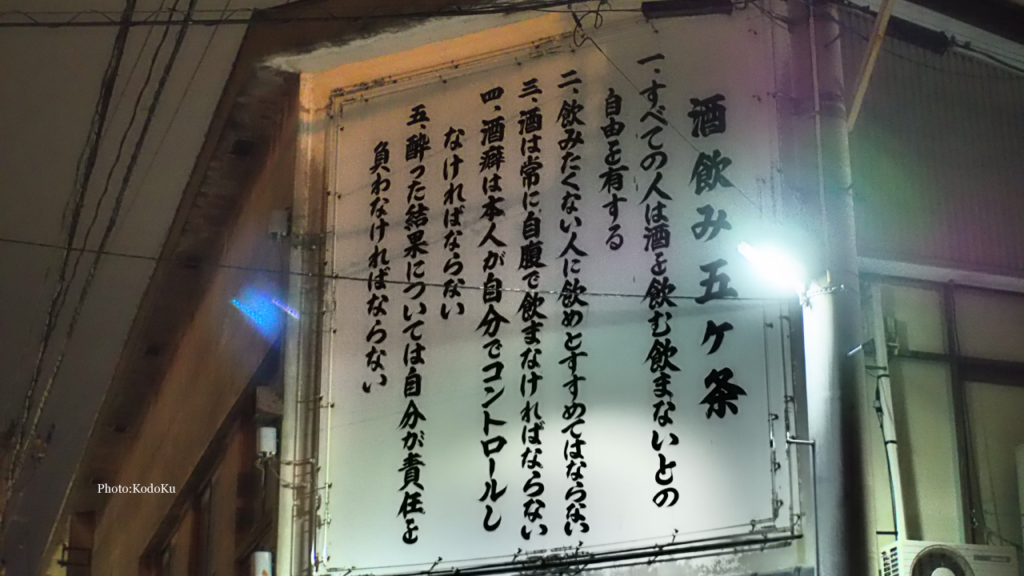 酒飲み五ケ条
一、すべての人は酒を飲む飲まないとの
自由を有する
二、飲みたくない人に飲めとすすめてはならない
三、酒は常に自腹で飲まなければならない
四、酒癖は本人が自分でコントロールし
なければならない
五、酔った結果については自分が責任を
負わなければならない
Photo:KodoKu